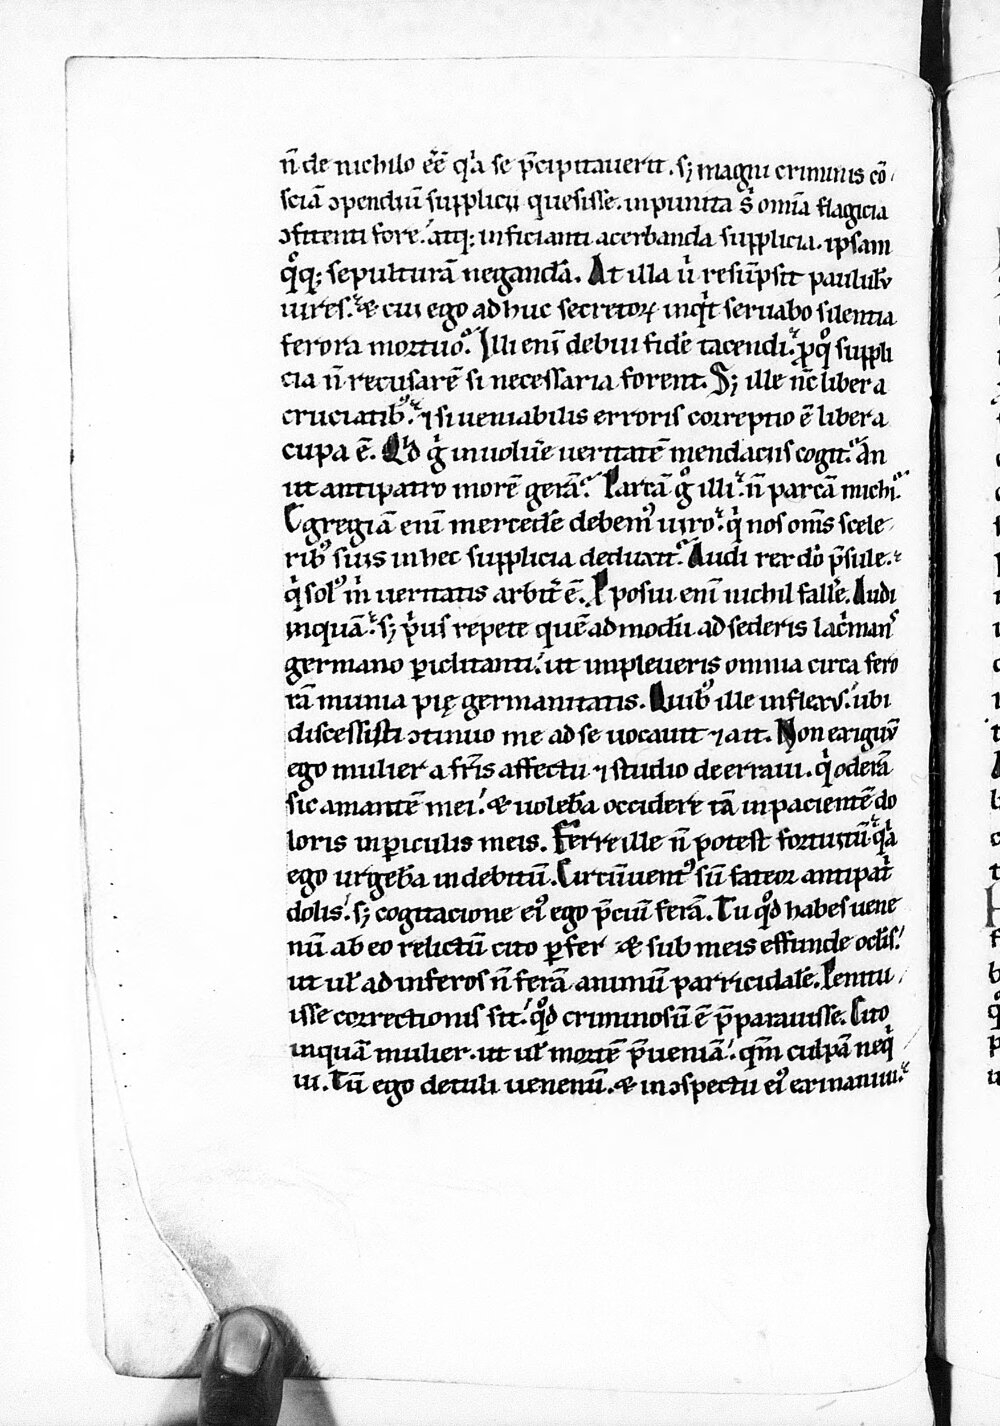 n̄ de nichilo eē̄ qͥa se p̄cipitauerit. sꝫ magni criminis cō-
sciā ↄpendiū supplicii quesisse. inpunita s̄ omīa flagicia
ↄfitenti fore. atqꝫ inficianti acerbanda supplicia. ipsam
qͦqꝫ sepulturā negandā. At illa ū resūpsit paululū
uires. & cui ego adhuc secretoꝝ inqͥt seruabo silentia
ferora mortuo. Illi enī debui fidē tacendi. ꝓ qͦ suppli
cia n̄ recusarē si necessaria forent. Sꝫ ille nc̄ libera
cruciatibꝰ. ⁊ si ueniabilis erroris correptio ē libera
cupa ē. Qͥd g̊ inuolūe ueritatē mendaciis cogit. An
ut antipatro morē gerā. Parcā g̊ illi. n̄ parcā michi.
Egregiā enī mercedē debemꝰ uiro. qͥ nos om̄s scele-
ribꝰ suis in hec supplicia deduxit. Audi rex do p̄sule.
qͥ solꝰ m̄ ueritatis arbit̄ ē. Pposui enī nichil fallē. Audi
inquā. sꝫ pͥus repete quēadmodū ad sederis lacͥmans
germano ꝑiclitanti. ut impleueris omnia circa fero
rā munia pię germanitatis. Quibꝰ ille inflexꝰ. ubi
discessisti ↄtinuo me ad se uocauit ⁊ ait. Non exiguū
ego mulier a fr̄is affectu ⁊ studio de erraui. qͥ oderā
sic amantē mei. & uolebā occidere tā inpacientē do
loris in ꝑiculis meis. Ferre ille n̄ potest fortuitū qͥa
ego urgebā indebitū. Circūuentꝰ sū fateor antipat̄
dolis. sꝫ cogitacione eiꝰ ego p̄ciū ferā. Tu qͦd habes uene
nū ab eo relictū cito ꝑfer & sub meis effunde oclis.
ut ul̄ ad inferos n̄ ferā animū parricidalē. Penitu-
isse correctionis sit. qͦd criminosū ē p̄parauisse. Cito
inquā mulier. ut ul̄ mortē p̄ueniā. qm̄ culpā neqͥ
ui. Tū ego detuli uenenū. & in ↄspectu eiꝰ exinaniui.